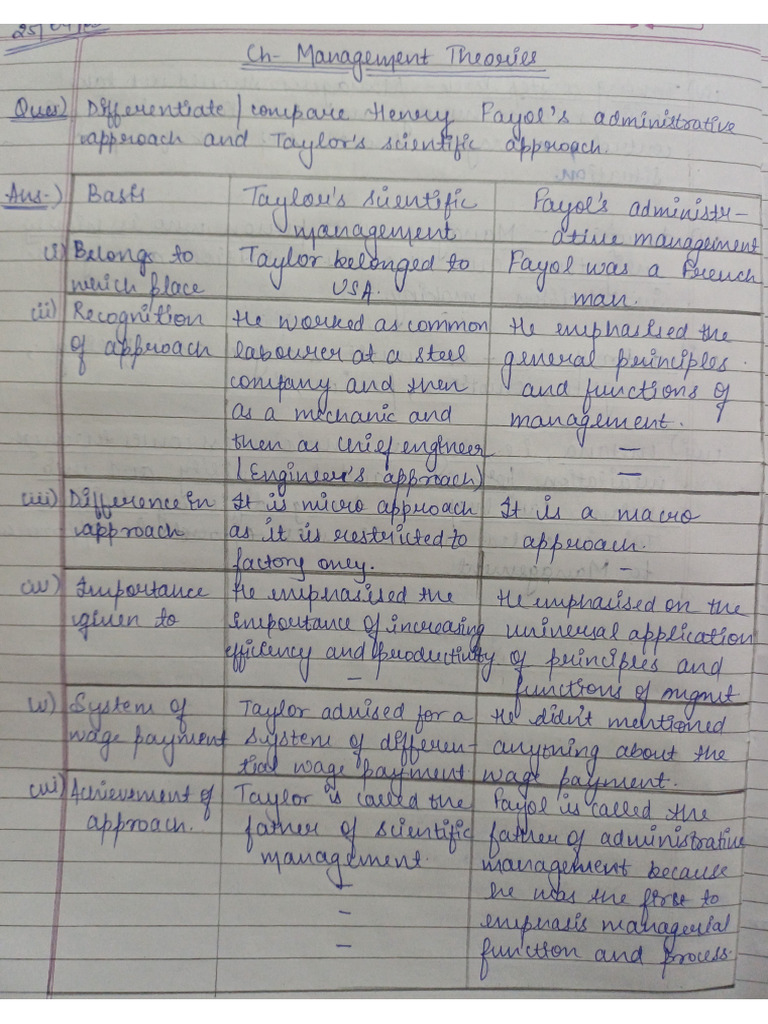 25/04/
Ch- Management Theories
Ques) Differentiate / compare Henry Fayol's administrative
approach and Taylor's scientific approach.
Ans-) Basis
Taylor's scientific
management
Fayol's administr-
ative management
(i) Belongs to
which place
Taylor belonged to
USA.
Fayol was a French
man.
(ii) Recognition
of approach
He worked as common
labourer at a steel
company and then
as a mechanic and
then as chief engineer
(Engineer's approach)
He emphasised the
general principles
and functions of
management.
(iii) Difference in
approach
It is micro approach
as it is restricted to
factory only.
It is a macro
approach.
(iv) Importance
given to
He emphasised the
importance of increasing
efficiency and productivity
He emphasised on the
universal application
of principles and
functions of mgmt
v) System of
wage payment
Taylor advised for a
system of differen-
tial wage payment
He didn't mentioned
anything about the
wage payment.
(vi) Achievement of
approach.
Taylor is called the
father of scientific
management.
Fayol is called the
father of administrative
management because
he was the first to
emphasis managerial
function and process.